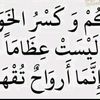 كُمْ وَ كَسْرُ الْخَوَ
لَيْسَتْ عِظَامًا
إِنَّمَا أَرْوَاحٌ تُقْهَ